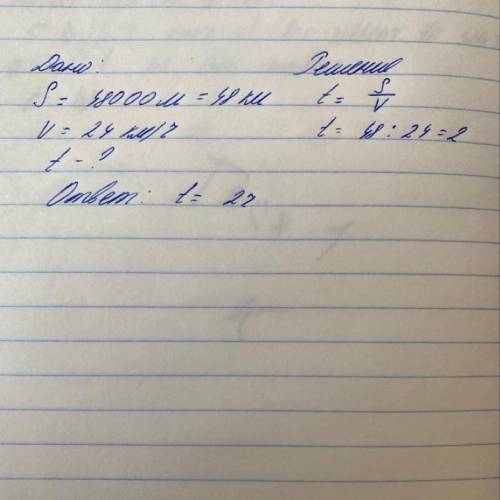 Дано: Решение
S = 48000 м = 48 км t = S/V
V = 24 км/ч t = 48 : 24 = 2
t - ?
Ответ: t = 2ч